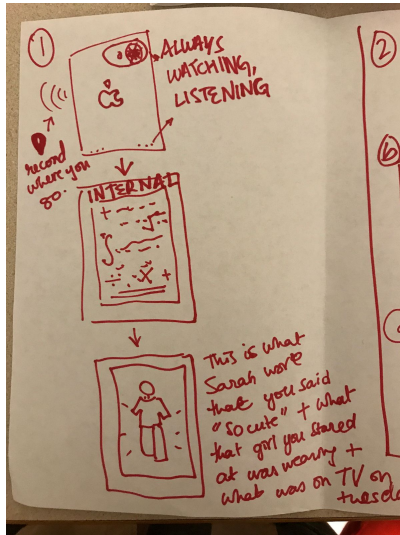 1
ALWAYS
WATCHING,
LISTENING
record
where you
go.
INTERNAL
This is what
Sarah wore
that you said
"so cute" + what
that girl you stared
at was wearing +
what was on TV on
tuesda
2
b